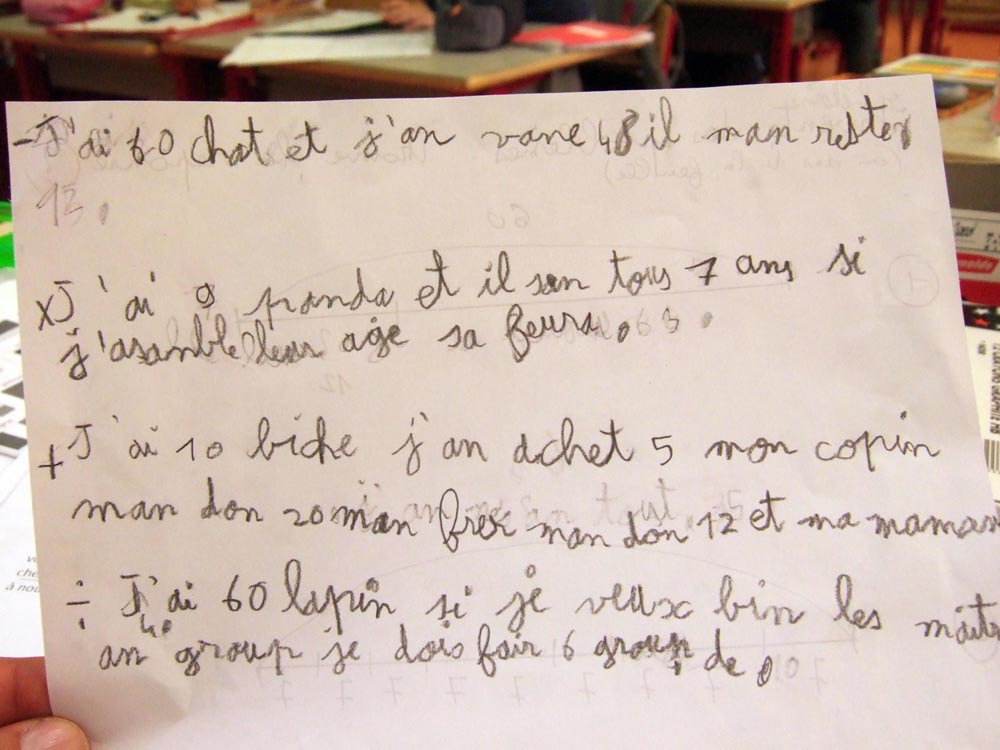 - J'ai 60 chat et j'an vane 48 il man rester
12.
x J'ai 9 panda et il son tous 7 ans si
j'asamble leur age sa feura. 63.
+ J'ai 10 biche j'an achet 5 mon copin
man don 20 man frer man don 12 et ma maman
÷ J'ai 60 lapin si je veux bin les maitr
an group je dois fair 6 group de.